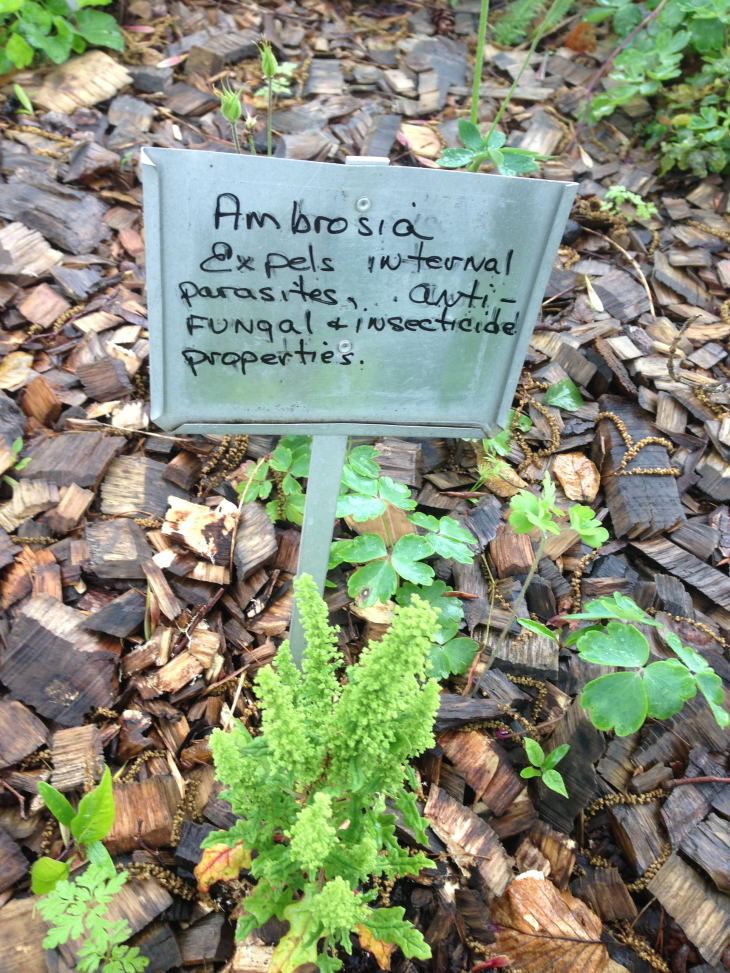 Ambrosia
Expels internal
parasites, anti-
Fungal + insecticide
properties.